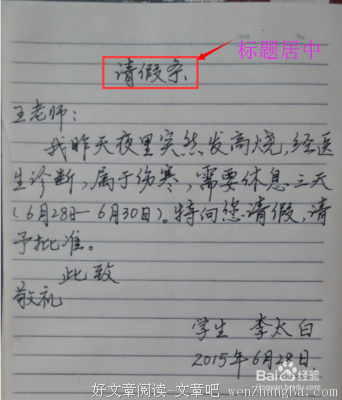 请假条
标题居中
王老师:
我昨天夜里突然发高烧,经医
生诊断,属于伤寒,需要休息三天
(6月28日-6月30日)。特向您请假,请
予批准。
此致
敬礼
学生 李太白
2015年6月28日
Baidu经验
jingyan.baidu.com
好文章阅读-文章吧 wenzhangba.com